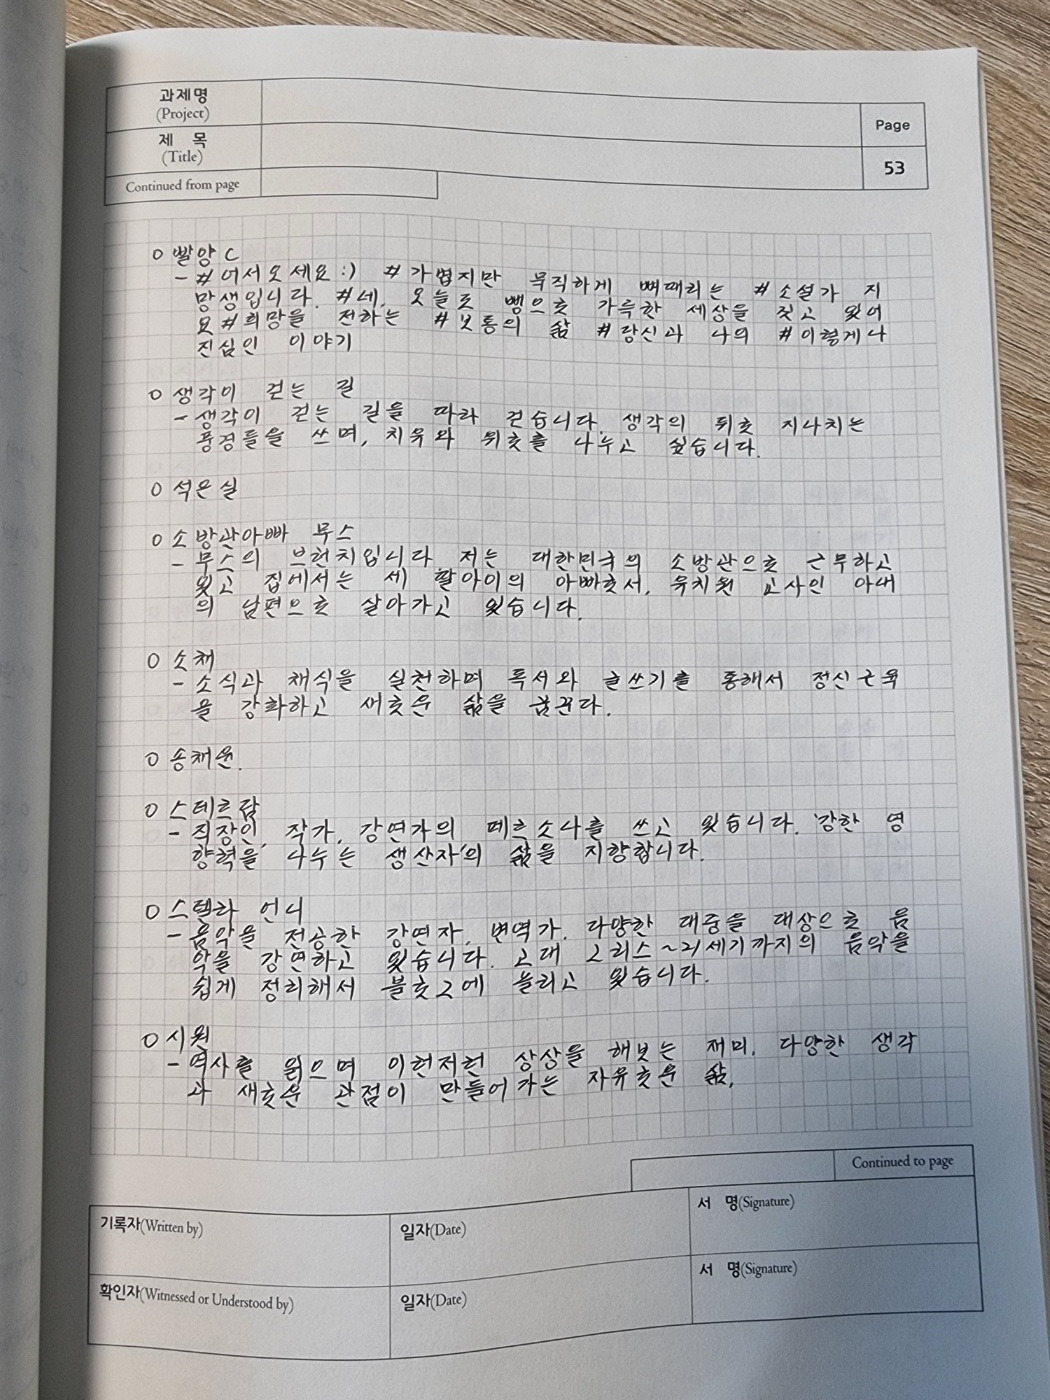 과제명
(Project)
제 목
(Title)
Page
53
Continued from page
O 빨양C
- #어서오세요:) #가볍지만 묵직하게 뼈때리는 #소설가 지
망생입니다. #네, 오늘도 뻥으로 가득한 세상을 짓고 있어
요 #희망을 전하는 #보통의 삶 #당신과 나의 #이렇게나
진심인 이야기
O 생각이 걷는 길
- 생각이 걷는 길을 따라 걷습니다. 생각의 뒤로 지나치는
풍경들을 쓰며, 치유와 위로를 나누고 싶습니다.
O 석은실
O 소방관아빠 무스
- 무스의 브런치입니다. 저는 대한민국의 소방관으로 근무하고
있고 집에서는 세 딸아이의 아빠로서, 유치원 교사인 아내
의 남편으로 살아가고 있습니다.
O 소채
- 소식과 채식을 실천하며 독서와 글쓰기를 통해서 정신근육
을 강화하고 새로운 삶을 꿈꾼다.
O 송채윤.
O 스테르담
- 직장인, 작가, 강연가의 페르소나를 쓰고 있습니다. '강한 영
향력을 나누는 생산자'의 삶을 지향합니다.
O 스텔라 언니
- 음악을 전공한 강연자, 번역가. 다양한 대중을 대상으로 음
악을 강연하고 있습니다. 고대 그리스~21세기까지의 음악을
쉽게 정리해서 블로그에 올리고 있습니다.
O 시원
- 역사를 읽으며 이런저런 상상을 해보는 재미. 다양한 생각
과 새로운 관점이 만들어가는 자유로운 삶,
Continued to page
기록자(Written by)
일자(Date)
서 명(Signature)
확인자(Witnessed or Understood by)
일자(Date)
서 명(Signature)